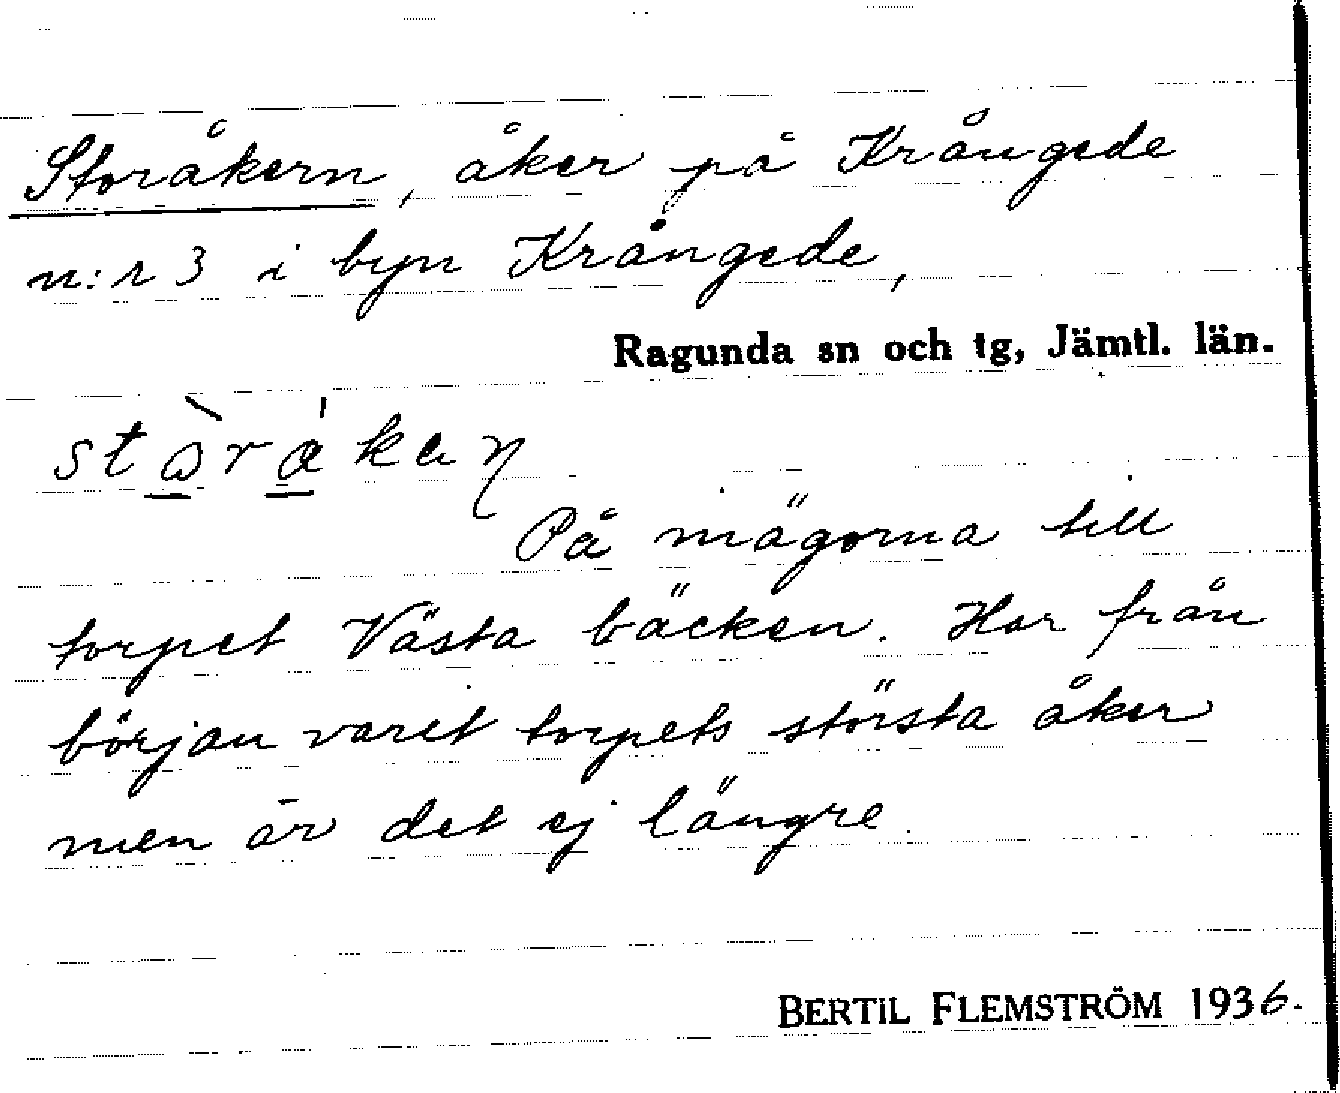 Storåkern, åker på Krångede
n:r 3 i byn Krångede,
Ragunda sn och tg, Jämtl. län.
På mägorna till
torpet Västa bäcken. Har från
början varit torpets största åker
men är det ej längre.
BERTIL FLEMSTRÖM 1936.